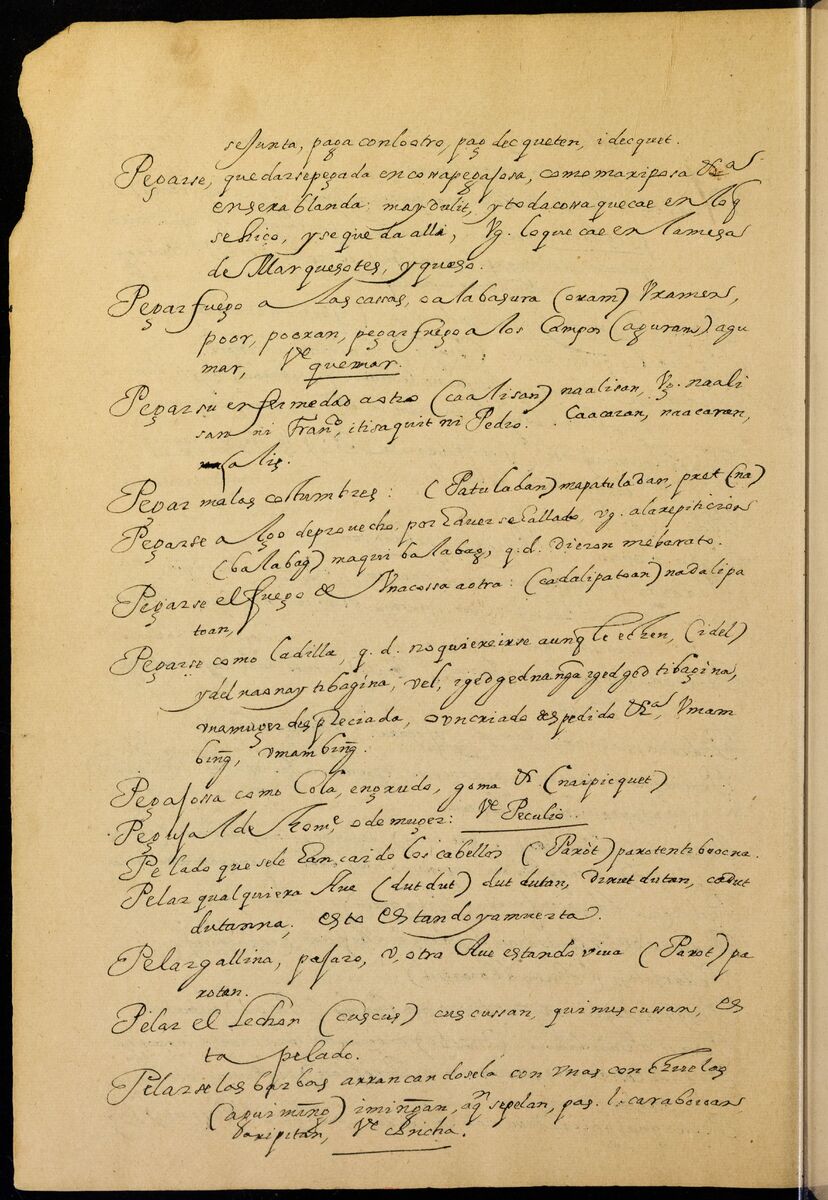 se Junta, paga con lo otro, pag dec queten, i dec quet.
Pegarse, quedarse pegada en cossa pegajosa, como mariposa &ª
en sera blanda: maydulit, y toda cossa que cae en lo q̃
se hiço, y se queda alli, Vg. lo que cae en la mesa
de Marquesotes, y queso.
Pegar fuego a las cassas, o a la basura (oram) Vramen,
poor, pooran, pegar fuego a los campos (aguram) agu
mar, Vᵉ quemar.
Pegar su enfermedad a otro (caalisan) naalisan, Vg. naali
san ni Franᶜᵒ, itisaquit ni Pedro. Caacaran, naacaran,
alis.
Pegar malas costumbres: (Patuladan) mapatuladan, pret (na)
Pegarse algo de prouecho, por hauerse hallado, vg. a la repiticion
(balabag) maqui balabag, q. d. dieron me barato.
Pegarse el fuego de Vna cossa a otra: (cadalipatoan) nadalipa
toan,
Pegarse como ladilla, q. d. no quiere irse aunq̃ le echen, (idel)
ydel na onay tibagina, vel, igedged nanga igedged tibagina,
vna muger despreciada, o vn criado despedido &ª, Vmam
bing̃, vmambing̃.
Pegajossa como Cola, engrudo, goma & (naipicquet)
Pegujal de homᵉ o de muger: Vᵉ Peculio.
Pelado que se le han caido los cabellos (Parot) paroten ti buocna.
Pelar qualquiera Aue (dutdut) dutdutan, dinutdutan, cadut
dutanna, esto estando ya muerta.
Pelar gallina, pajaro, v, otra Aue estando viua (Parot) pa
rotan.
Pelar el Lechon (cuscus) cuscussan, quinuscussan, es
ta pelado.
Pelarse las barbas arrancandosela con vnas conchuelas
(aguiming̃) iming̃an, aqⁿ se pelan, pag.
Varipitan, Vᵉ Concha.